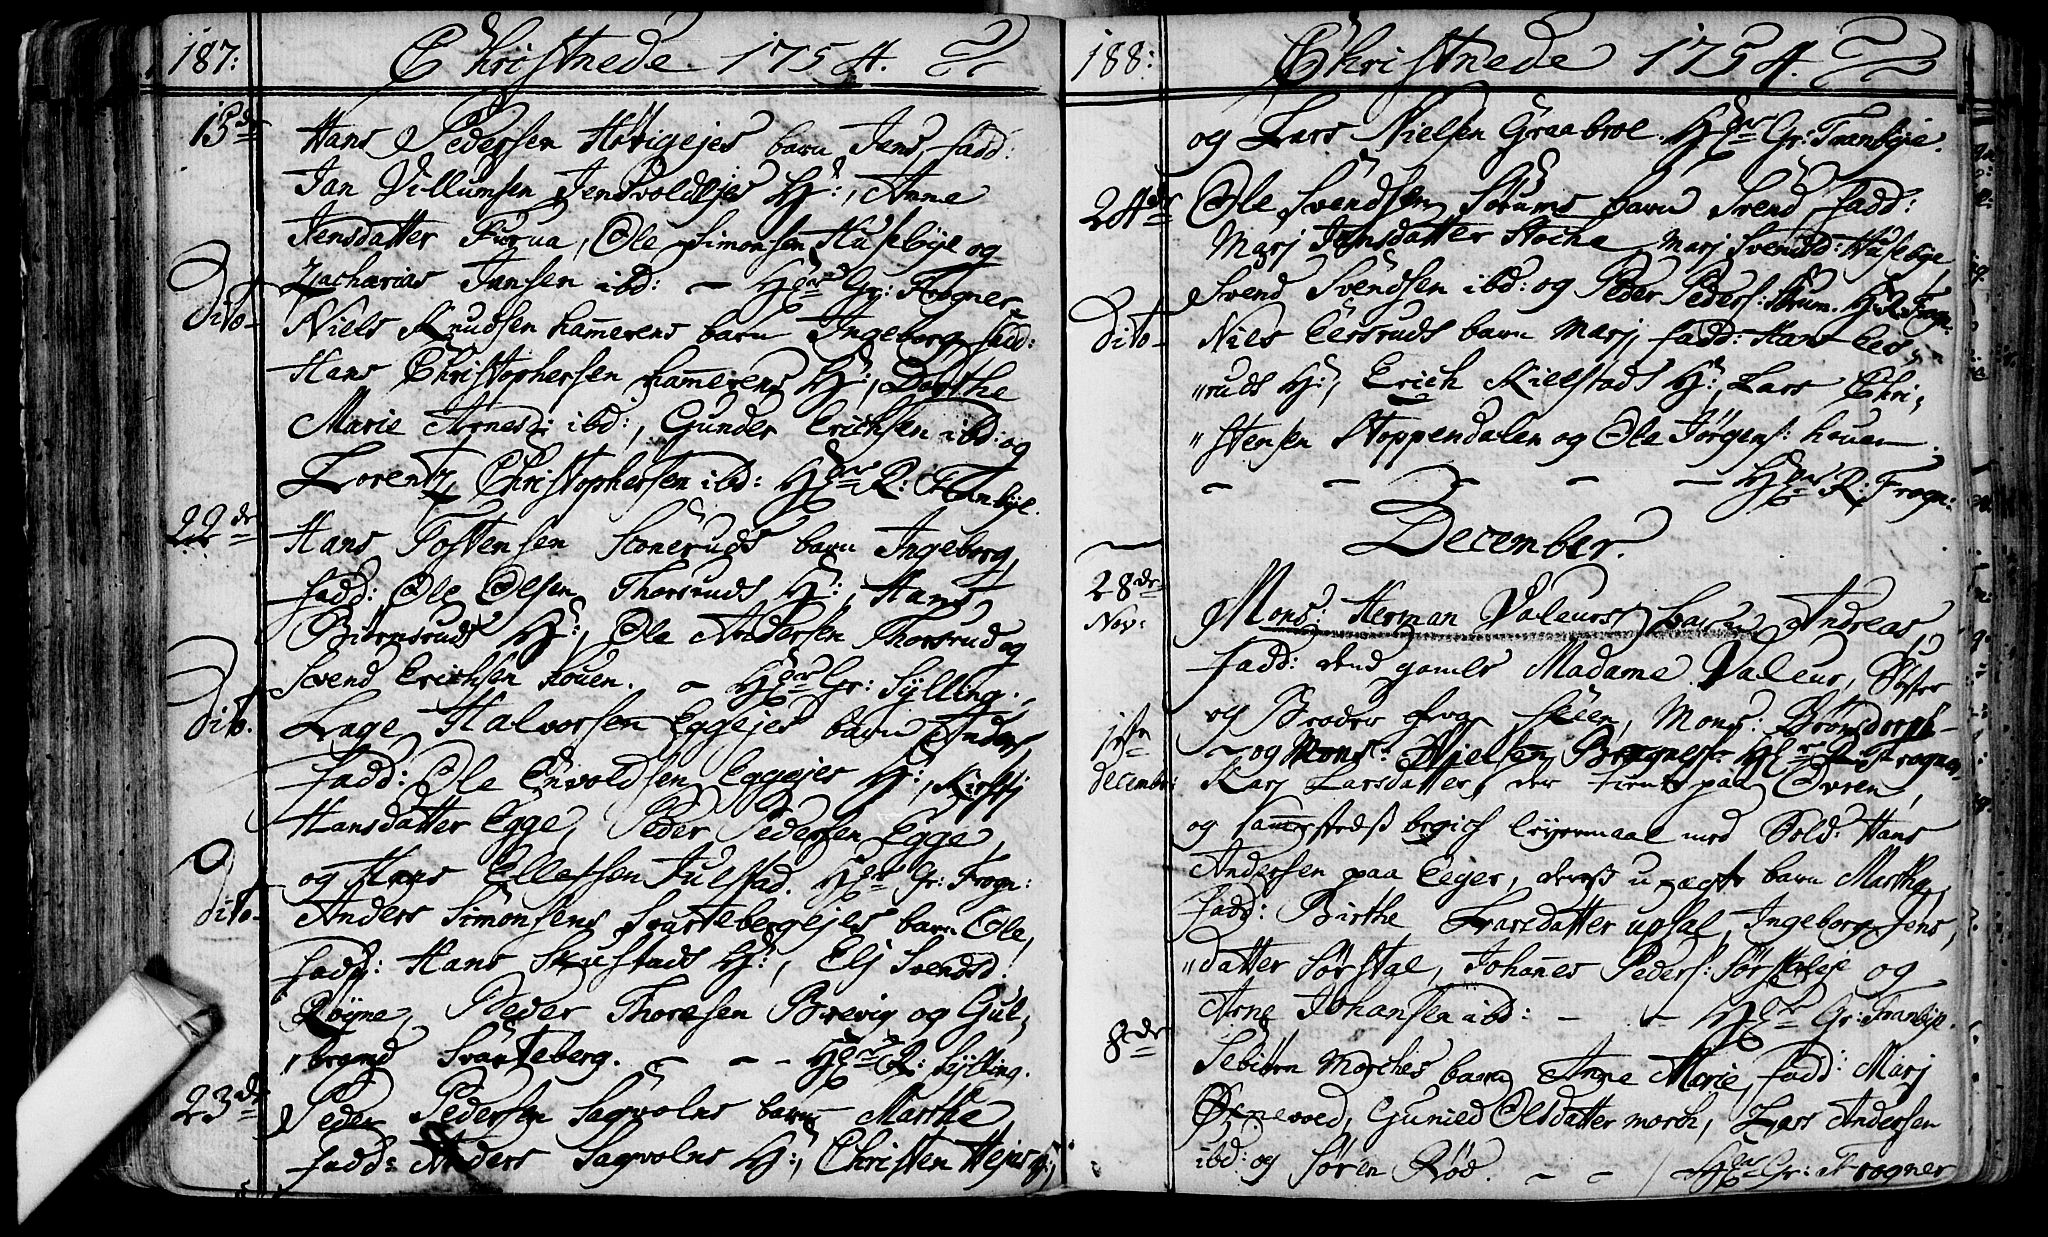 187: Christnede 1754.
15de Hans Pedersen Hørigejes barn Jens, fadd:
Jan Villumsen Jensvoldejes H:, Anne
Jensdatter Furua, Ole Simonsen Husebye og
Zacharias Jensen ibd: — Hr Gr: Frogner
dito Niels Knudsen hamerens barn Ingeborg fadd:
Hans Christophersen hamerens H:, Dorthe
Marie Arnesd: ibd:, Gunder Erichsen ibd: og
Lorentz Christophersen ibd: R: Tranbye.
22de Hans Tostensen Stoneruds barn Ingeborg,
fadd: Ole Olsen Thorsruds H:, Hans
Biørnsruds H:, Ole Andersen Thorsrud og
Svend Erichsen houen. — Gr: Sylling.
dito. Lage Halvorsen Eggejes barn Anders,
fadd: Ole Envoldsen Eggejes H:, Kirstj
Hansdatter Egge, Peder Pedersen Egge,
og Hans Ellefsen Julstad. Gr: Frogn:
dito Anders Simonsens Svartebergejes barn Ole,
fadd: Hans Skustads H:, Elj Svendsd:
Røyne, Peder Thoresen Brevig og Gul,
brand Svarteberg. — — — R: Sylling.
23de Peder Pedersen Sagvolns barn Marthe
fadd: Anders Sagvolns H:, Christen Hejns
188: Christnede 1754.
og Lars Nielsen Graabroe. Gr: Tranbye.
24de Ole Svendsen Sørums barn Svend, fadd:
Marj Jensdatter Stoche, Marj Svendsd: Husebye
Svend Svendsen ibd: og Peder Peders: Sørum. R: Frogn:
dito Niels Eersruds barn Marj, fadd: Hans Eers
"ruds H:, Erich Kielstads H:, Lars Chri,
"stensen Stoppendalen og Ole Jørgens: houen.
— — — — — R: Frogn:
December.
28de Nov: Mons: Herman Valeurs barn Andreas,
fadd: dend gamle Madame Valeur, Søster
og Broder fra Skeen, Mons: Brønsdorph
1ste — og Mons: Nielsen Bragnes: R: Frogner
December: Karj Larsdatter, der tiente paa Øvren,
og sammestedss begich leyermaal med Sold: Hans
Andersen paa Eeger, deress u-ægte barn Marthe,
fadd: Birthe Larsdatter upsal, Ingeborg Jens,
"datter Sørstal, Johanes Peders: Sørstal og
Arne Johansen ibd: — — Gr: Tranbye.
8de Sebiørn Morches barn Anne Marie, fadd: Marj
Øenevold, Gunild Olsdatter morch, Lars Andersen
ibd: og Søren Rød. — — Gr: Frogner